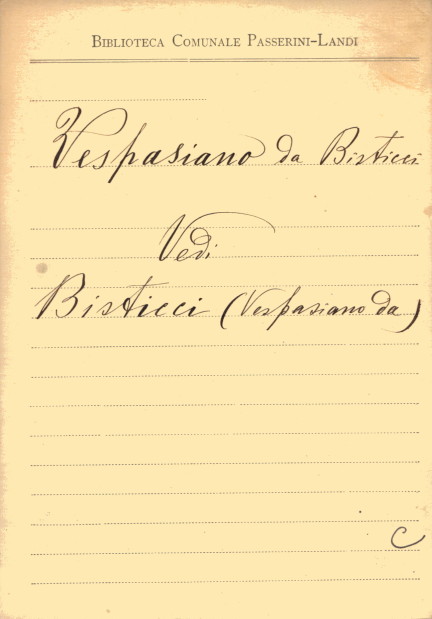 BIBLIOTECA COMUNALE PASSERINI-LANDI
Vespasiano da Bisticci
Vedi
Bisticci (Vespasiano da)
C